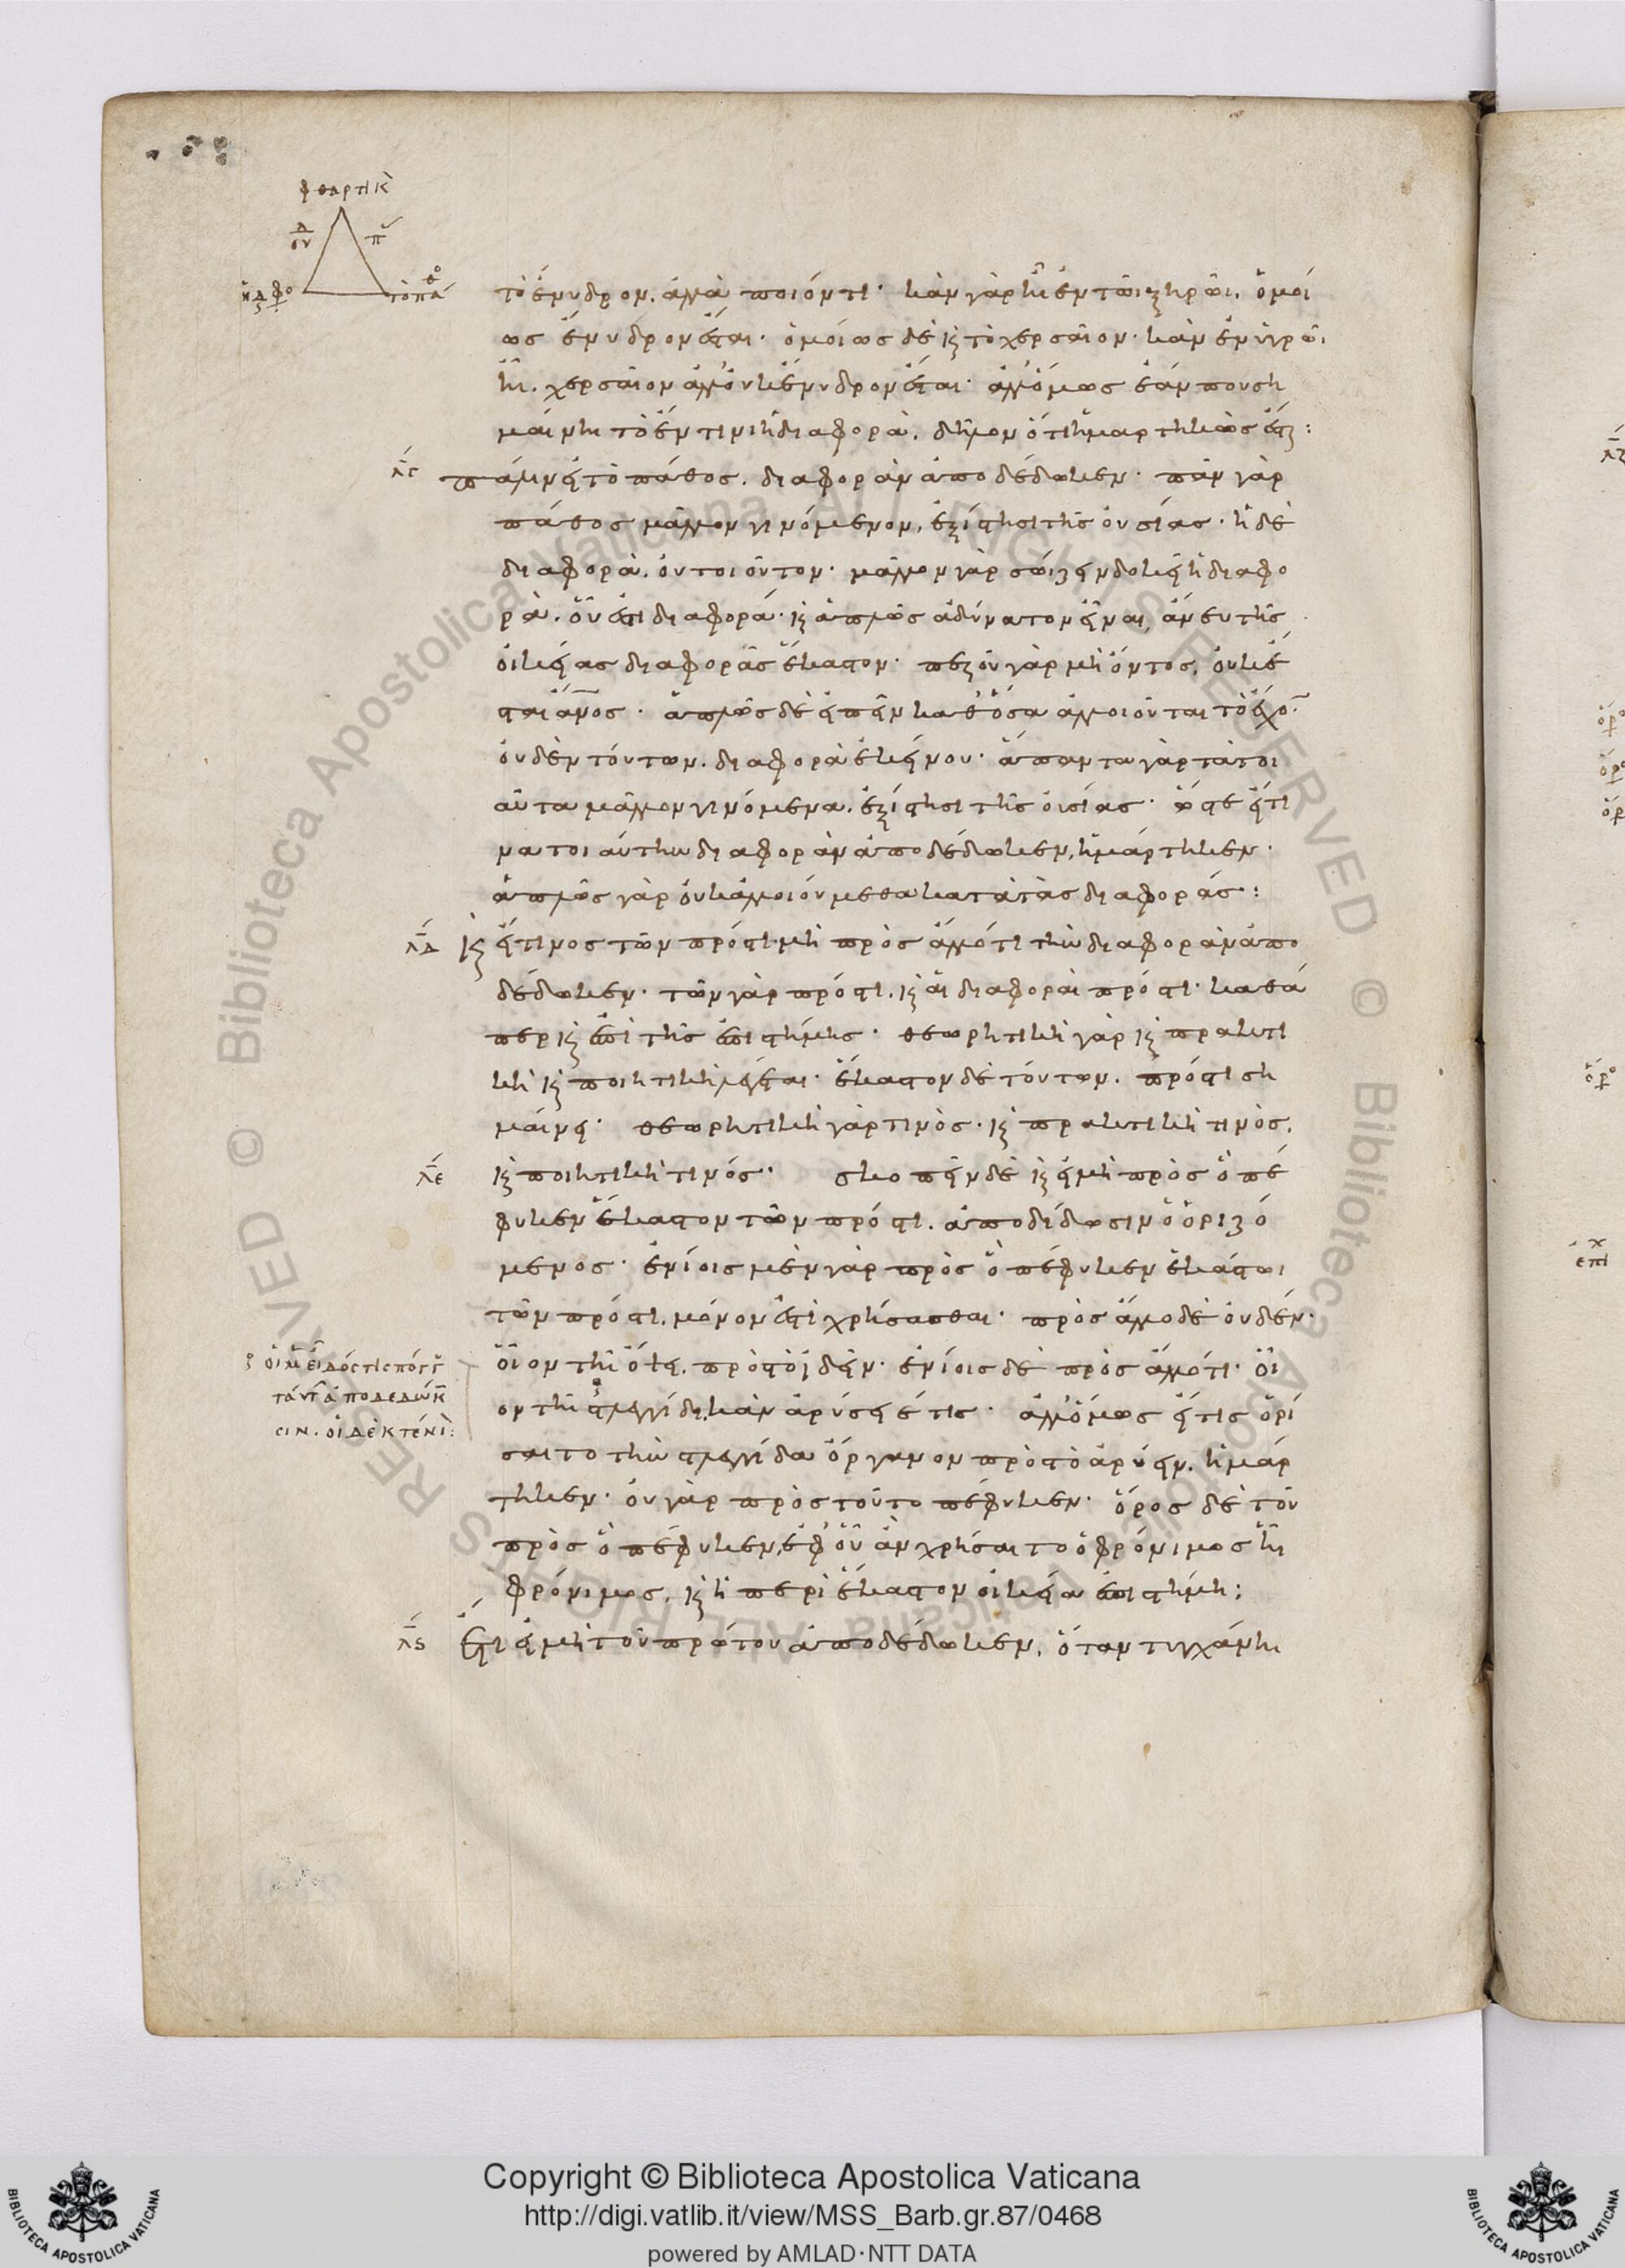 φθαρτικ
τὸ ἔνυδρον. ἀλλὰ ποιόν τι· κἂν γὰρ ἦι ἐν τῶι ξηρῶι. ὁμοί
ως ἔνυδρον ἔσται· ὁμοίως δὲ καὶ τὸ χερσαῖον· κἂν ἐν ὑγρῶι
ἦι. χερσαῖον ἀλλ' οὐκ ἔνυδρον ἔσται· ἀλλ' ὅμως ἐάν που ση
μαίνηι τὸ ἔν τινι ἡ διαφορὰ. δῆλον ὅτι ἡμαρτηκὼς ἔσται:
λγ
πάλιν εἰ τὸ πάθος. διαφορὰν ἀποδέδωκεν· πᾶν γὰρ
πάθος μᾶλλον γινόμενον, ἐξίστησι τῆς οὐσίας· ἡ δὲ
διαφορὰ. οὐ τοιοῦτον· μᾶλλον γὰρ σώιζειν δοκεῖ ἡ διαφο
ρὰ. οὗ ἐστι διαφορά· καὶ ἁπλῶς ἀδύνατον εἶναι, ἄνευ τῆς
οἰκείας διαφορᾶς ἕκαστον· πεζοῦ γὰρ μὴ ὄντος, οὐκ ἔ
σται ἄνος· ἁπλῶς δὲ εἰπεῖν καθ' ὅσα ἀλλοιοῦται τὸ ἔχο
οὐδὲν τούτων. διαφορὰ ἐκείνου· ἅπαντα γὰρ τὰ τοι
αῦτα μᾶλλον γινόμενα. ἐξίστησι τῆς οὐσίας· ὥστε εἴ τι
να τοιαύτην διαφορὰν ἀποδέδωκεν, ἡμάρτηκεν·
ἁπλῶς γὰρ οὐκ ἀλλοιούμεθα κατὰ τὰς διαφοράς:
λδ
καὶ εἴ τινος τῶν πρός τι μὴ πρὸς ἄλλό τι τὴν διαφορὰν ἀπο
δέδωκεν· τῶν γὰρ πρός τι. καὶ αἱ διαφοραὶ πρός τι· καθά
περ καὶ ἐπὶ τῆς ἐπιστήμης· θεωρητικὴ γὰρ καὶ πρακτι
κὴ καὶ ποιητικὴ λέγεται· ἕκαστον δὲ τούτων. πρός τι ση
μαίνει· θεωρητικὴ γάρ τινός· καὶ πρακτικὴ τινός.
λε
καὶ ποιητικὴ τινός· σκοπεῖν δὲ καὶ εἰ μὴ πρὸς ὃ πέ
φυκεν ἕκαστον τῶν πρός τι. ἀποδίδωσιν ὁ ὁριζό
μενος· ἐνίοις μὲν γὰρ πρὸς ὃ πέφυκεν ἑκάστωι
τῶν πρός τι. μόνον ἔστι χρήσασθαι· πρὸς ἄλλο δὲ οὐδέν·
οἷον τῆι ὄψει. πρὸς τὸ ἰδεῖν· ἐνίοις δὲ πρὸς ἄλλό τι· οἷ
ον τῆι στλεγγίδι, κἂν ἀρύσει έ τις· ἀλλ' ὅμως εἴ τις ὁρί
σαιτο τὴν στλεγγίδα ὄργανον πρὸς τὸ ἀρύειν. ἡμάρ
τηκεν· οὐ γὰρ πρὸς τοῦτο πέφυκεν· ὅρος δὲ τοῦ
πρὸς ὃ πέφυκεν, ἐφ' οὗ ἂν χρήσαιτο ὁ φρόνιμος ἧι
φρόνιμος, καὶ ἡ περὶ ἕκαστον οἰκεία ἐπιστήμη:
λϛ
ἔτι εἰ μὴ τοῦ πρώτου ἀποδέδωκεν, ὅταν τυγχάνηι
Copyright © Biblioteca Apostolica Vaticana
http://digi.vatlib.it/view/MSS_Barb.gr.87/0468
powered by AMLAD·NTT DATA